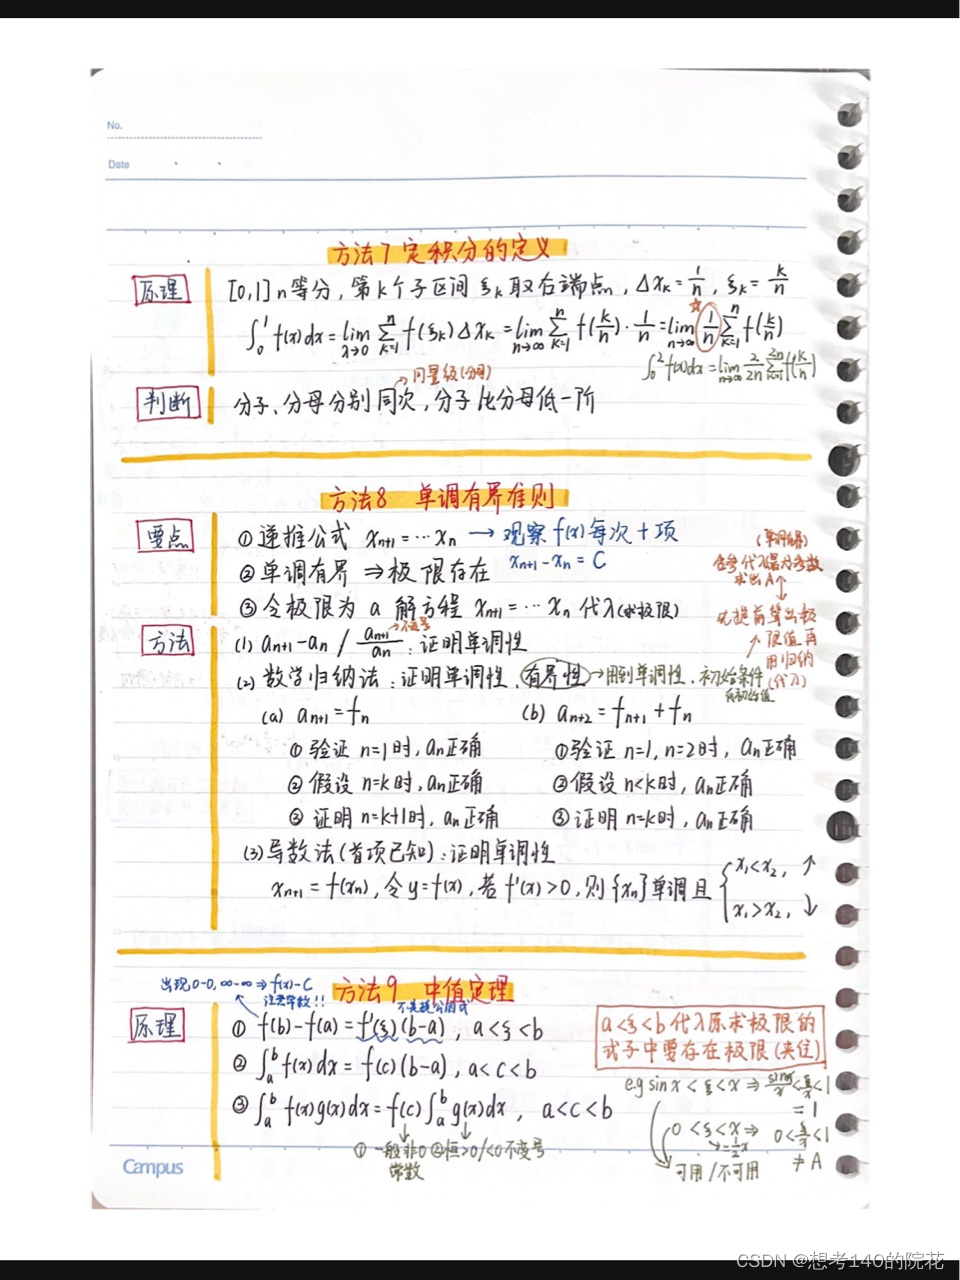 No.
Date
方法7 定积分的定义
原理 [0,1] n等分，第k个子区间 ξk 取右端点，Δxk = 1/n，ξk = k/n
∫₀¹ f(x)dx = lim λ→0 Σ k=1 n f(ξk)Δxk = lim n→∞ Σ k=1 n f(k/n)·1/n = lim n→∞ 1/n Σ k=1 n f(k/n)
∫₀² f(x)dx = lim n→∞ 2/2n Σ k=1 2n f(k/n)
→同量级(分母)
判断 分子、分母分别同次，分子比分母低一阶
方法8 单调有界准则
要点 ① 递推公式 xn+1 = ⋯ xn → 观察 f(x) 每次+项
xn+1 - xn = C
② 单调有界 ⇒ 极限存在
③ 令极限为 a 解方程 xn+1 = ⋯ xn 代入(求极限)
求出A
先提前算出极
限值再
用归纳
(代入)
方法 (1) an+1 - an / an+1/an：证明单调性
→不变号
(2) 数学归纳法：证明单调性、有界性 → 用到单调性、初始条件
(a) an+1 = fn (b) an+2 = fn+1 + fn
① 验证 n=1时，an正确 ① 验证 n=1, n=2时，an正确
② 假设 n=k时，an正确 ② 假设 n<k时，an正确
③ 证明 n=k+1时，an正确 ③ 证明 n=k时，an正确
(3) 导数法(首项已知)：证明单调性
xn+1 = f(xn)，令 y=f(x)，若 f'(x)>0，则 {xn} 单调且 { x₁<x₂, ↑
x₁>x₂, ↓
出现 0-0, ∞-∞ ⇒ f(x)-C
方法9 中值定理
注意常数!!
原理 ① f(b)-f(a) = f'(ξ)(b-a)，a<ξ<b
② ∫ₐᵇ f(x)dx = f(c)(b-a)，a<c<b
③ ∫ₐᵇ f(x)g(x)dx = f(c)∫ₐᵇ g(x)dx，a<c<b
① 一般非0 ② 恒>0/<0 不变号
常数
a<ξ<b 代入原求极限的
式子中要存在极限(夹住)
e.g sinx<ξ<x ⇒ sinx/x<ξ/x<1
=1
0<ξ<x ⇒ 0<ξ/x<1
→=1/2x ≠A
可用/不可用
Campus
CSDN @想考140的院花